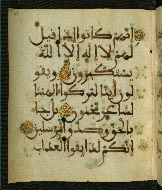 إنهم كانوا إذا قيل
لهم لا إله إلا الله
يستكبرون ويقو
لون أينا لتركوا ءالهتنا
لشاعر مجنون بل جا
بالحق وصدق المرسلين
إنكم لذايقوا العذاب